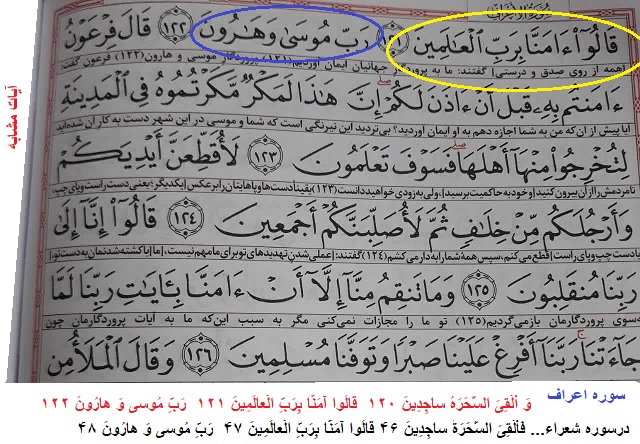 سُورَةُ الأَعْرَافِ
قَالُوٓا۟ ءَامَنَّا بِرَبِّ ٱلْعَٰلَمِينَ ١٢١ رَبِّ مُوسَىٰ وَهَٰرُونَ ١٢٢ قَالَ فِرْعَوْنُ
همه از روی صدق و درستی] گفتند: ما به پروردگار جهانیان ایمان آوردیم(۱۲۱) پروردگار موسی و هارون(۱۲۲) فرعون گفت:
ءَامَنتُم بِهِۦ قَبْلَ أَنْ ءَاذَنَ لَكُمْ إِنَّ هَٰذَا لَمَكْرٌ مَّكَرْتُمُوهُ فِى ٱلْمَدِينَةِ
آیا پیش از آن که من به شما اجازه دهم به او ایمان آوردید؟ بی‌تردید این نیرنگی است که شما و موسی در این شهر دست به کار آن شده‌اید
لِتُخْرِجُوا۟ مِنْهَآ أَهْلَهَا فَسَوْفَ تَعْلَمُونَ ١٢٣ لَأُقَطِّعَنَّ أَيْدِيَكُمْ
تا مردمش را از آن بیرون کنید [و خود به حاکمیت برسید]، ولی به زودی خواهید دانست(۱۲۳) یقیناً دست‌ها و پاهایتان را برعکس [یکدیگر؛ یعنی دست راست و پای چپ،
وَأَرْجُلَكُم مِّنْ خِلَٰفٍ ثُمَّ لَأُصَلِّبَنَّكُمْ أَجْمَعِينَ ١٢٤ قَالُوٓا۟ إِنَّآ إِلَىٰ
یا دست چپ و پای راست] قطع می‌کنم، سپس همه شما را به دار می‌کشم(۱۲۴) گفتند: [عملی شدن تهدیدهای تو برای ما مهم نیست،] ما [با کشته شدنمان به دست تو،]
رَبِّنَا مُنقَلِبُونَ ١٢٥ وَمَا تَنقِمُ مِنَّآ إِلَّآ أَنْ ءَامَنَّا بِـَٔايَٰتِ رَبِّنَا لَمَّا
به‌سوی پروردگارمان بازمی‌گردیم(۱۲۵) تو ما را مجازات نمی‌کنی مگر به سبب این‌که ما به آیات پروردگارمان چون
جَآءَتْنَا رَبَّنَآ أَفْرِغْ عَلَيْنَا صَبْرًا وَتَوَفَّنَا مُسْلِمِينَ ١٢٦ وَقَالَ ٱلْمَلَأُ مِن
آیات مشابه
سوره اعراف
وَ أُلْقِيَ السَّحَرَةُ ساجِدِينَ ١٢٠ قالُوا آمَنَّا بِرَبِّ الْعالَمِينَ ١٢١ رَبِّ مُوسى وَ هارُونَ ١٢٢
درسوره شعراء... فَأُلْقِيَ السَّحَرَةُ ساجِدِينَ ٤٦ قالُوا آمَنَّا بِرَبِّ الْعالَمِينَ ٤٧ رَبِّ مُوسى وَ هارُونَ ٤٨